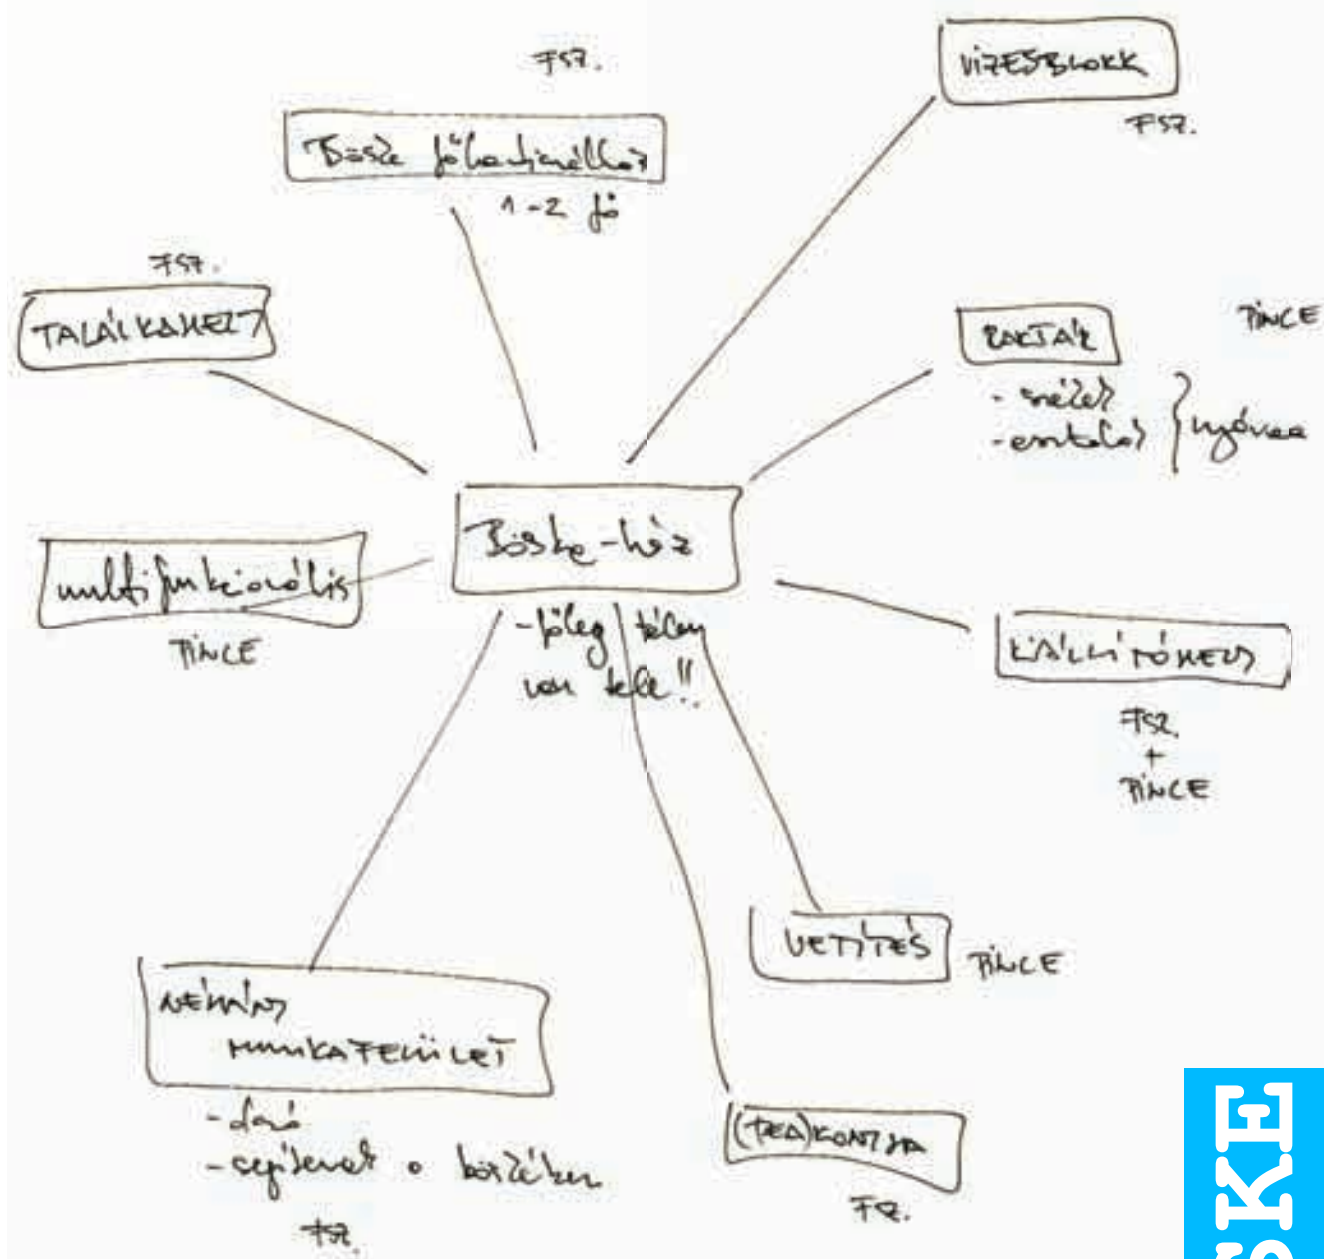 FSZ.
VIZESBLOKK
FSZ.
Böske főhadiszállás
1-2 fő
FSZ.
TALÁLKAHELY
RAKTÁR
PINCE
- székek
- asztalok } nyárra
Böske-ház
- főleg télen
van tele!!
multifunkcionális
PINCE
KIÁLLÍTÓHELY
FSZ.
+
PINCE
VETÍTÉS
PINCE
NÉHÁNY
MUNKAFELÜLET
- segítenek a
FSZ.
(TEA)KONYHA
FSZ.
SKE